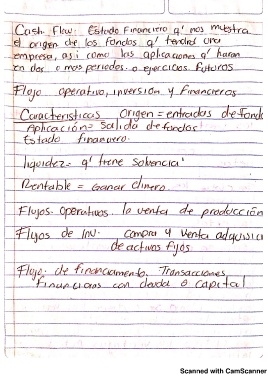 Cash Flow: Estado Financiero q' nos muestra
el origen de los fondos q' tendrá una
empresa, asi como las aplicaciones q' haran
en dos o mas periodos o ejercicios futuros.
Flujo operativo, inversión y Financieros
Caracteristicas Origen = entradas de fond
Aplicación = Salida de fondos
Estado financiero.
liquidez = q' tiene solvencia
Rentable = Ganar dinero.
Flujos. Operativos. la venta de producción
Flujos de Inv. compra y venta adquisic
de activos fijos
Flujo. de financiamento. Transacciones
financieras con deuda o capital
Scanned with CamScanner